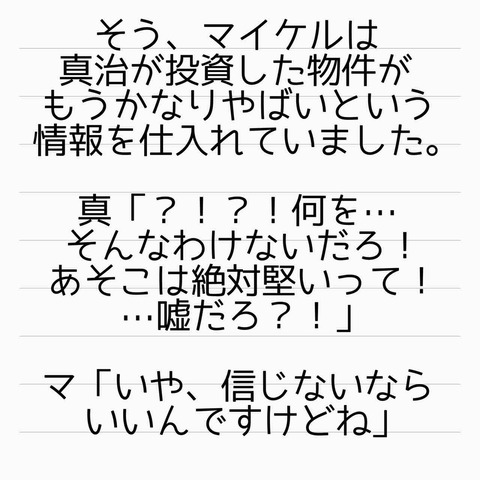 そう、マイケルは
真治が投資した物件が
もうかなりやばいという
情報を仕入れていました。
真「？！？！何を…
そんなわけないだろ！
あそこは絶対堅いって！
…嘘だろ？！」
マ「いや、信じないなら
いいんですけどね」